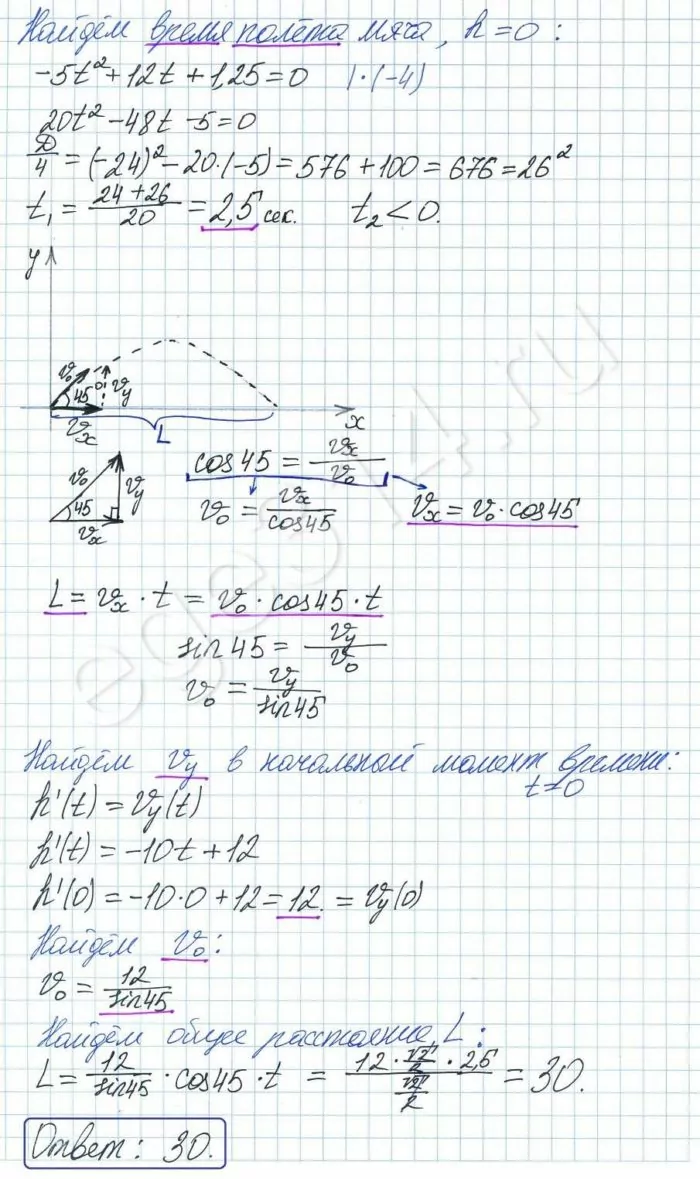 Найдём время полёта мяча, h=0:
-5t²+12t+1,25=0 |·(-4)
20t²-48t-5=0
Д/4=(-24)²-20·(-5)=576+100=676=26²
t₁=(24+26)/20=2,5 сек. t₂<0.
y
v₀ 45° v_y
v_x L x
v₀ 45 v_y v_x
cos45=v_x/v₀
v₀=v_x/cos45 v_x=v₀·cos45
L=v_x·t=v₀·cos45·t
sin45=v_y/v₀
v₀=v_y/sin45
Найдём v_y в начальной момент времени:
t=0
h'(t)=v_y(t)
h'(t)=-10t+12
h'(0)=-10·0+12=12.=v_y(0)
Найдём v₀:
v₀=12/sin45
Найдём общее расстояние, L:
L=12/sin45·cos45·t=(12·√2/2·2,5)/(√2/2)=30.
Ответ: 30.
ege314.ru